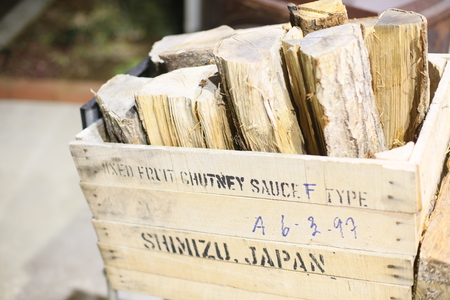 MIXED FRUIT CHUTNEY SAUCE F TYPE
A 6-3.97
SHIMIZU, JAPAN